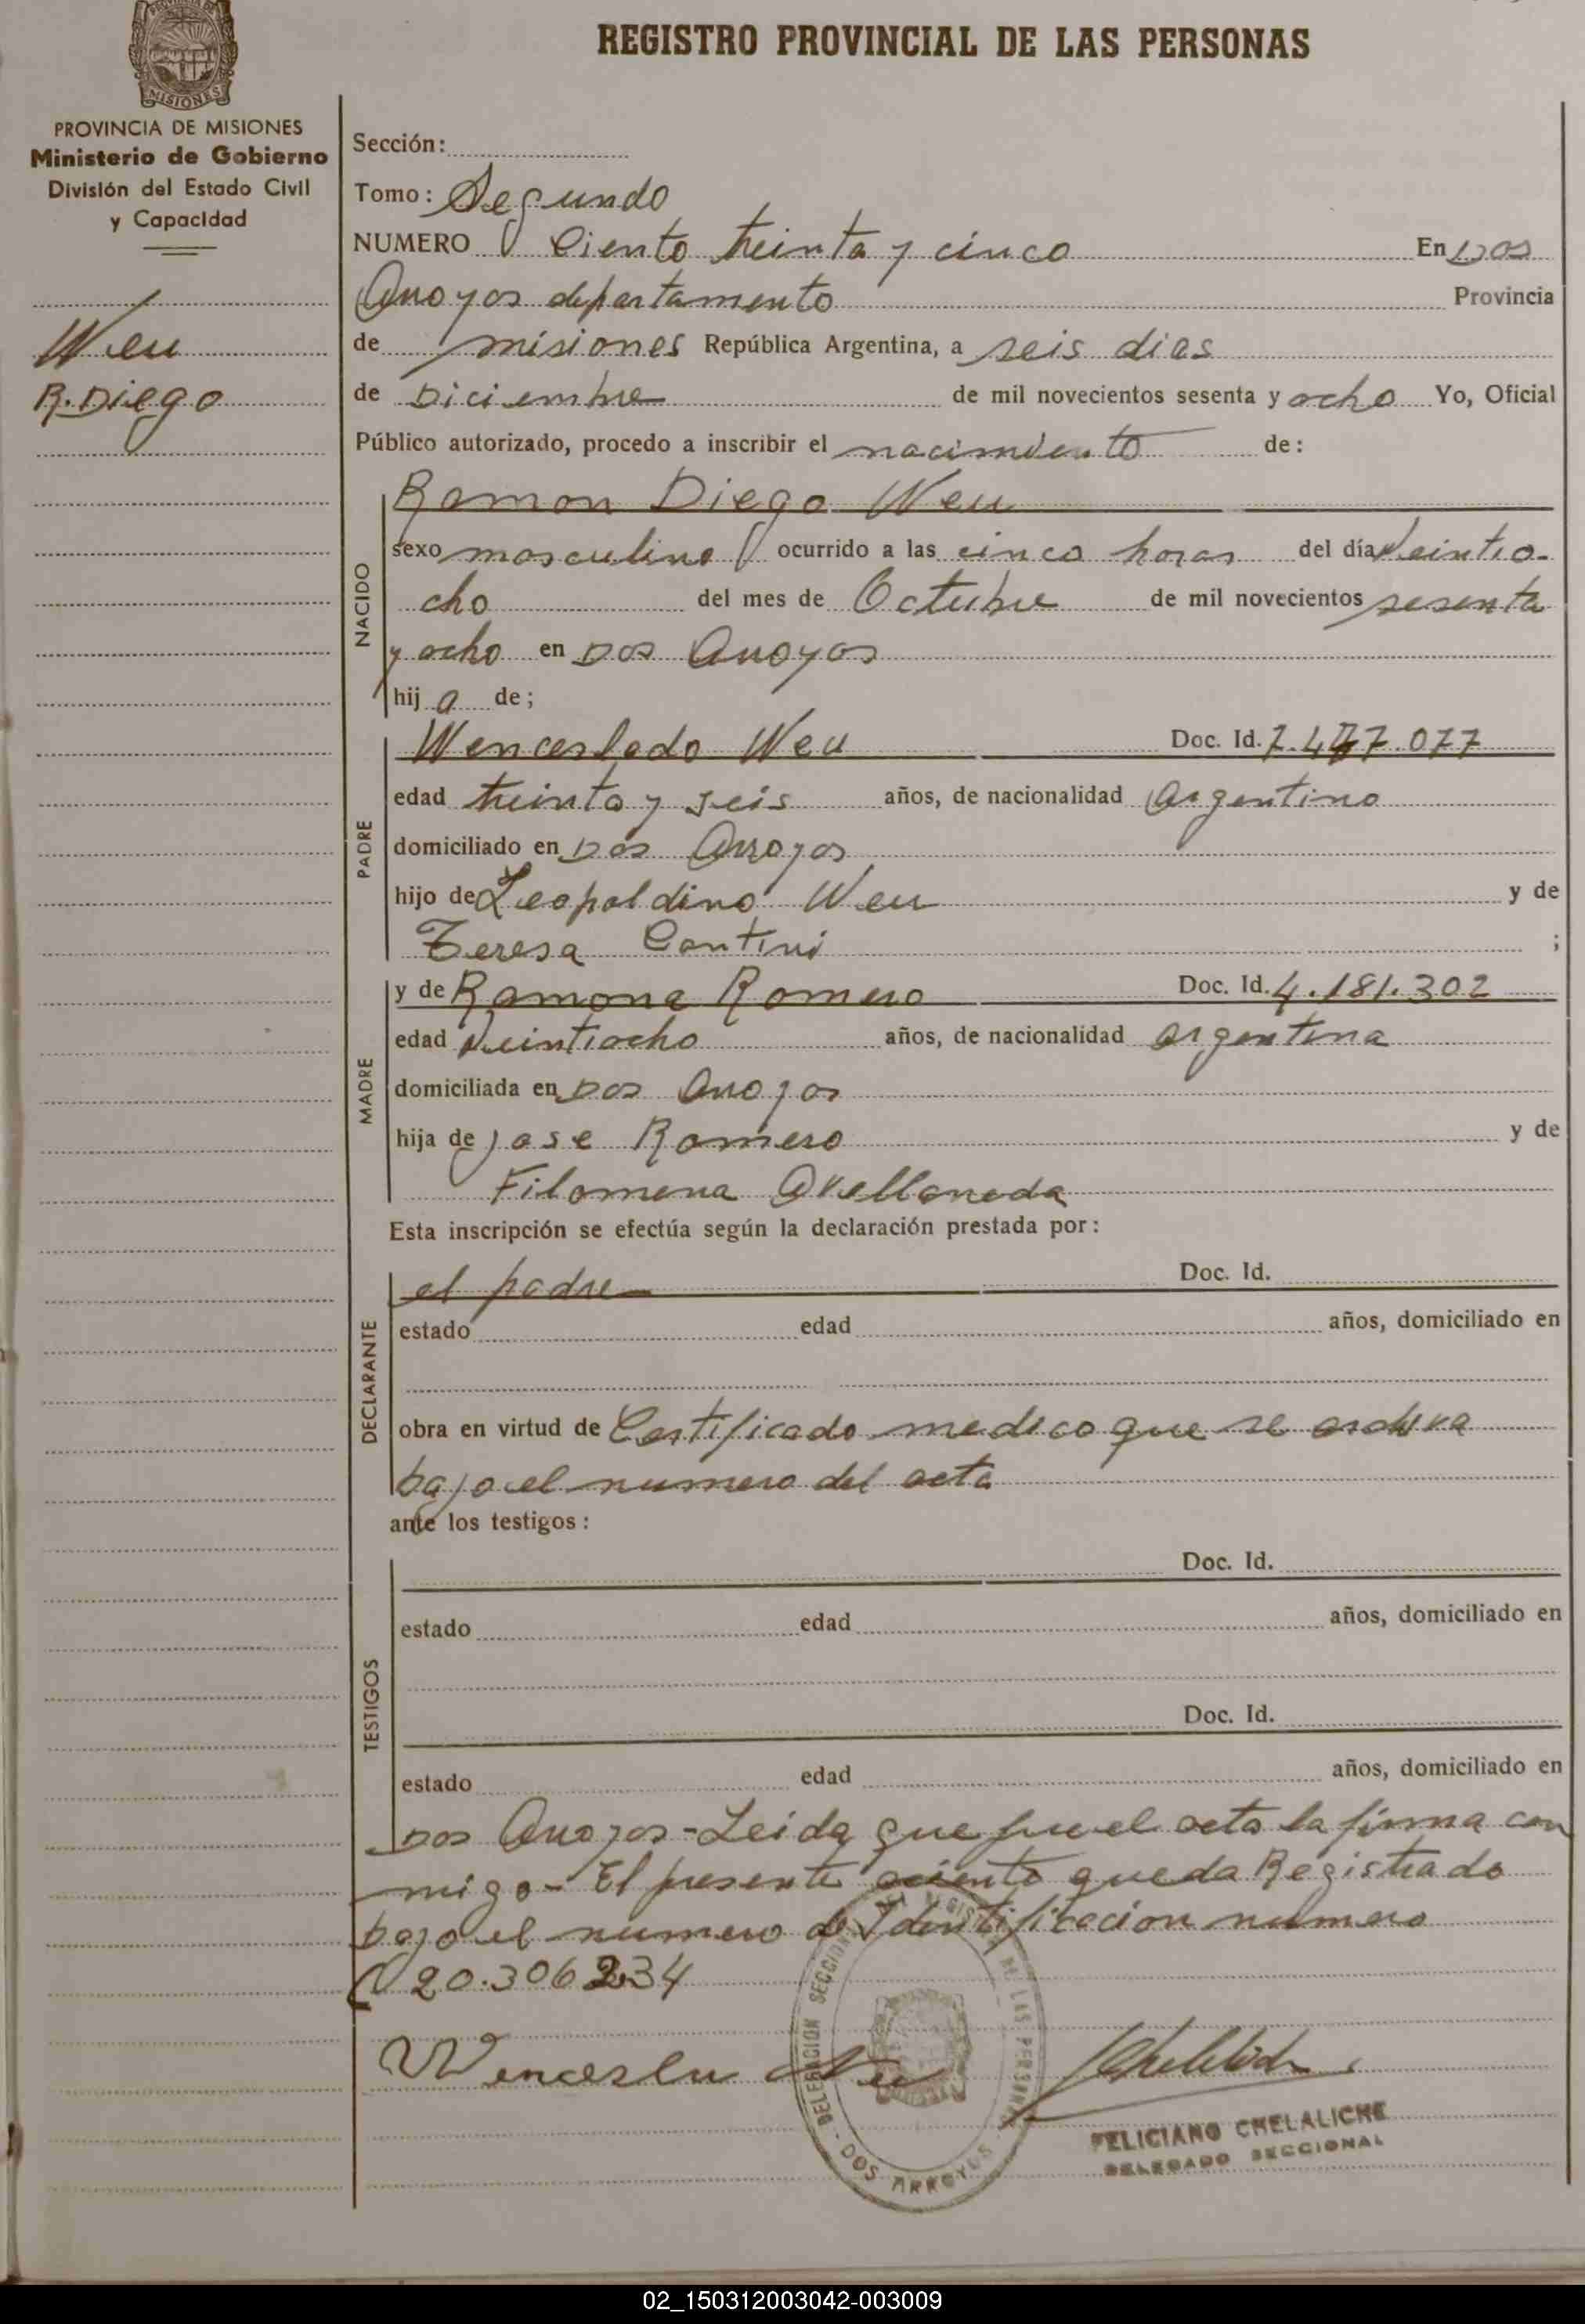 REGISTRO PROVINCIAL DE LAS PERSONAS
MISIONES
PROVINCIA DE MISIONES
Ministerio de Gobierno
División del Estado Civil
y Capacidad
Weu
R. Diego
Sección:
Tomo: Segundo
NUMERO Ciento treinta y cinco En Dos
Arroyos departamento Provincia
de misiones República Argentina, a seis dias
de Diciembre de mil novecientos sesenta y ocho Yo, Oficial
Público autorizado, procedo a inscribir el nacimiento de:
NACIDO
Ramon Diego Weu
sexo masculino ocurrido a las cinco horas del día Veintio-
cho del mes de Octubre de mil novecientos sesenta
y ocho en Dos Arroyos
hij o de;
PADRE
Wenceslado Weu Doc. Id. 7.477.077
edad treinta y seis años, de nacionalidad Argentino
domiciliado en Dos Arroyos
hijo de Leopoldino Weu y de
Teresa Contini ;
MADRE
y de Ramona Romero Doc. Id. 4.181.302
edad Veintiocho años, de nacionalidad argentina
domiciliada en Dos Arroyos
hija de Jose Romero y de
Filomena Avellaneda
Esta inscripción se efectúa según la declaración prestada por:
DECLARANTE
el padre Doc. Id.
estado edad años, domiciliado en
obra en virtud de Certificado medico que se archiva
bajo el numero del acta
ante los testigos:
TESTIGOS
Doc. Id.
estado edad años, domiciliado en
Doc. Id.
estado edad años, domiciliado en
Dos Arroyos - Leida que fue el acta la firma con
migo - El presente asiento queda Registrado
bajo el numero de Identificacion numero
20.306234
Wenceslu Weu
DELEGACION SECCIONAL REGISTRO DE LAS PERSONAS
DOS ARROYOS
FELICIANO CHELALICHE
DELEGADO SECCIONAL
02_150312003042-003009